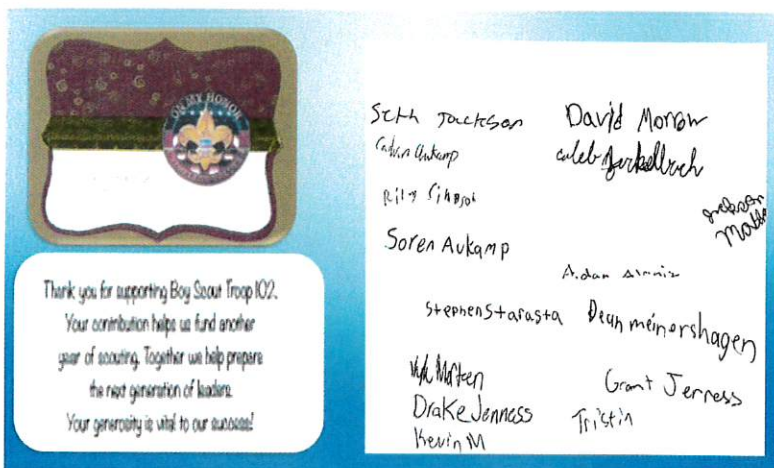 ON MY HONOR
Thank you for supporting Boy Scout Troop 102.
Your contribution helps us fund another
year of scouting. Together we help prepare
the next generation of leaders.
Your generosity is vital to our success!
Seth Jackson
David Morrow
Aukamp
Caleb
Soren Aukamp
Aidan
Stephen Starasta
Dean meinershagen
Grant Jenness
Drake Jenness
Tristin
Kevin M